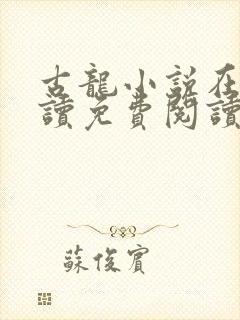 古龍小説在
讀免費閱讀
蘇俊賓